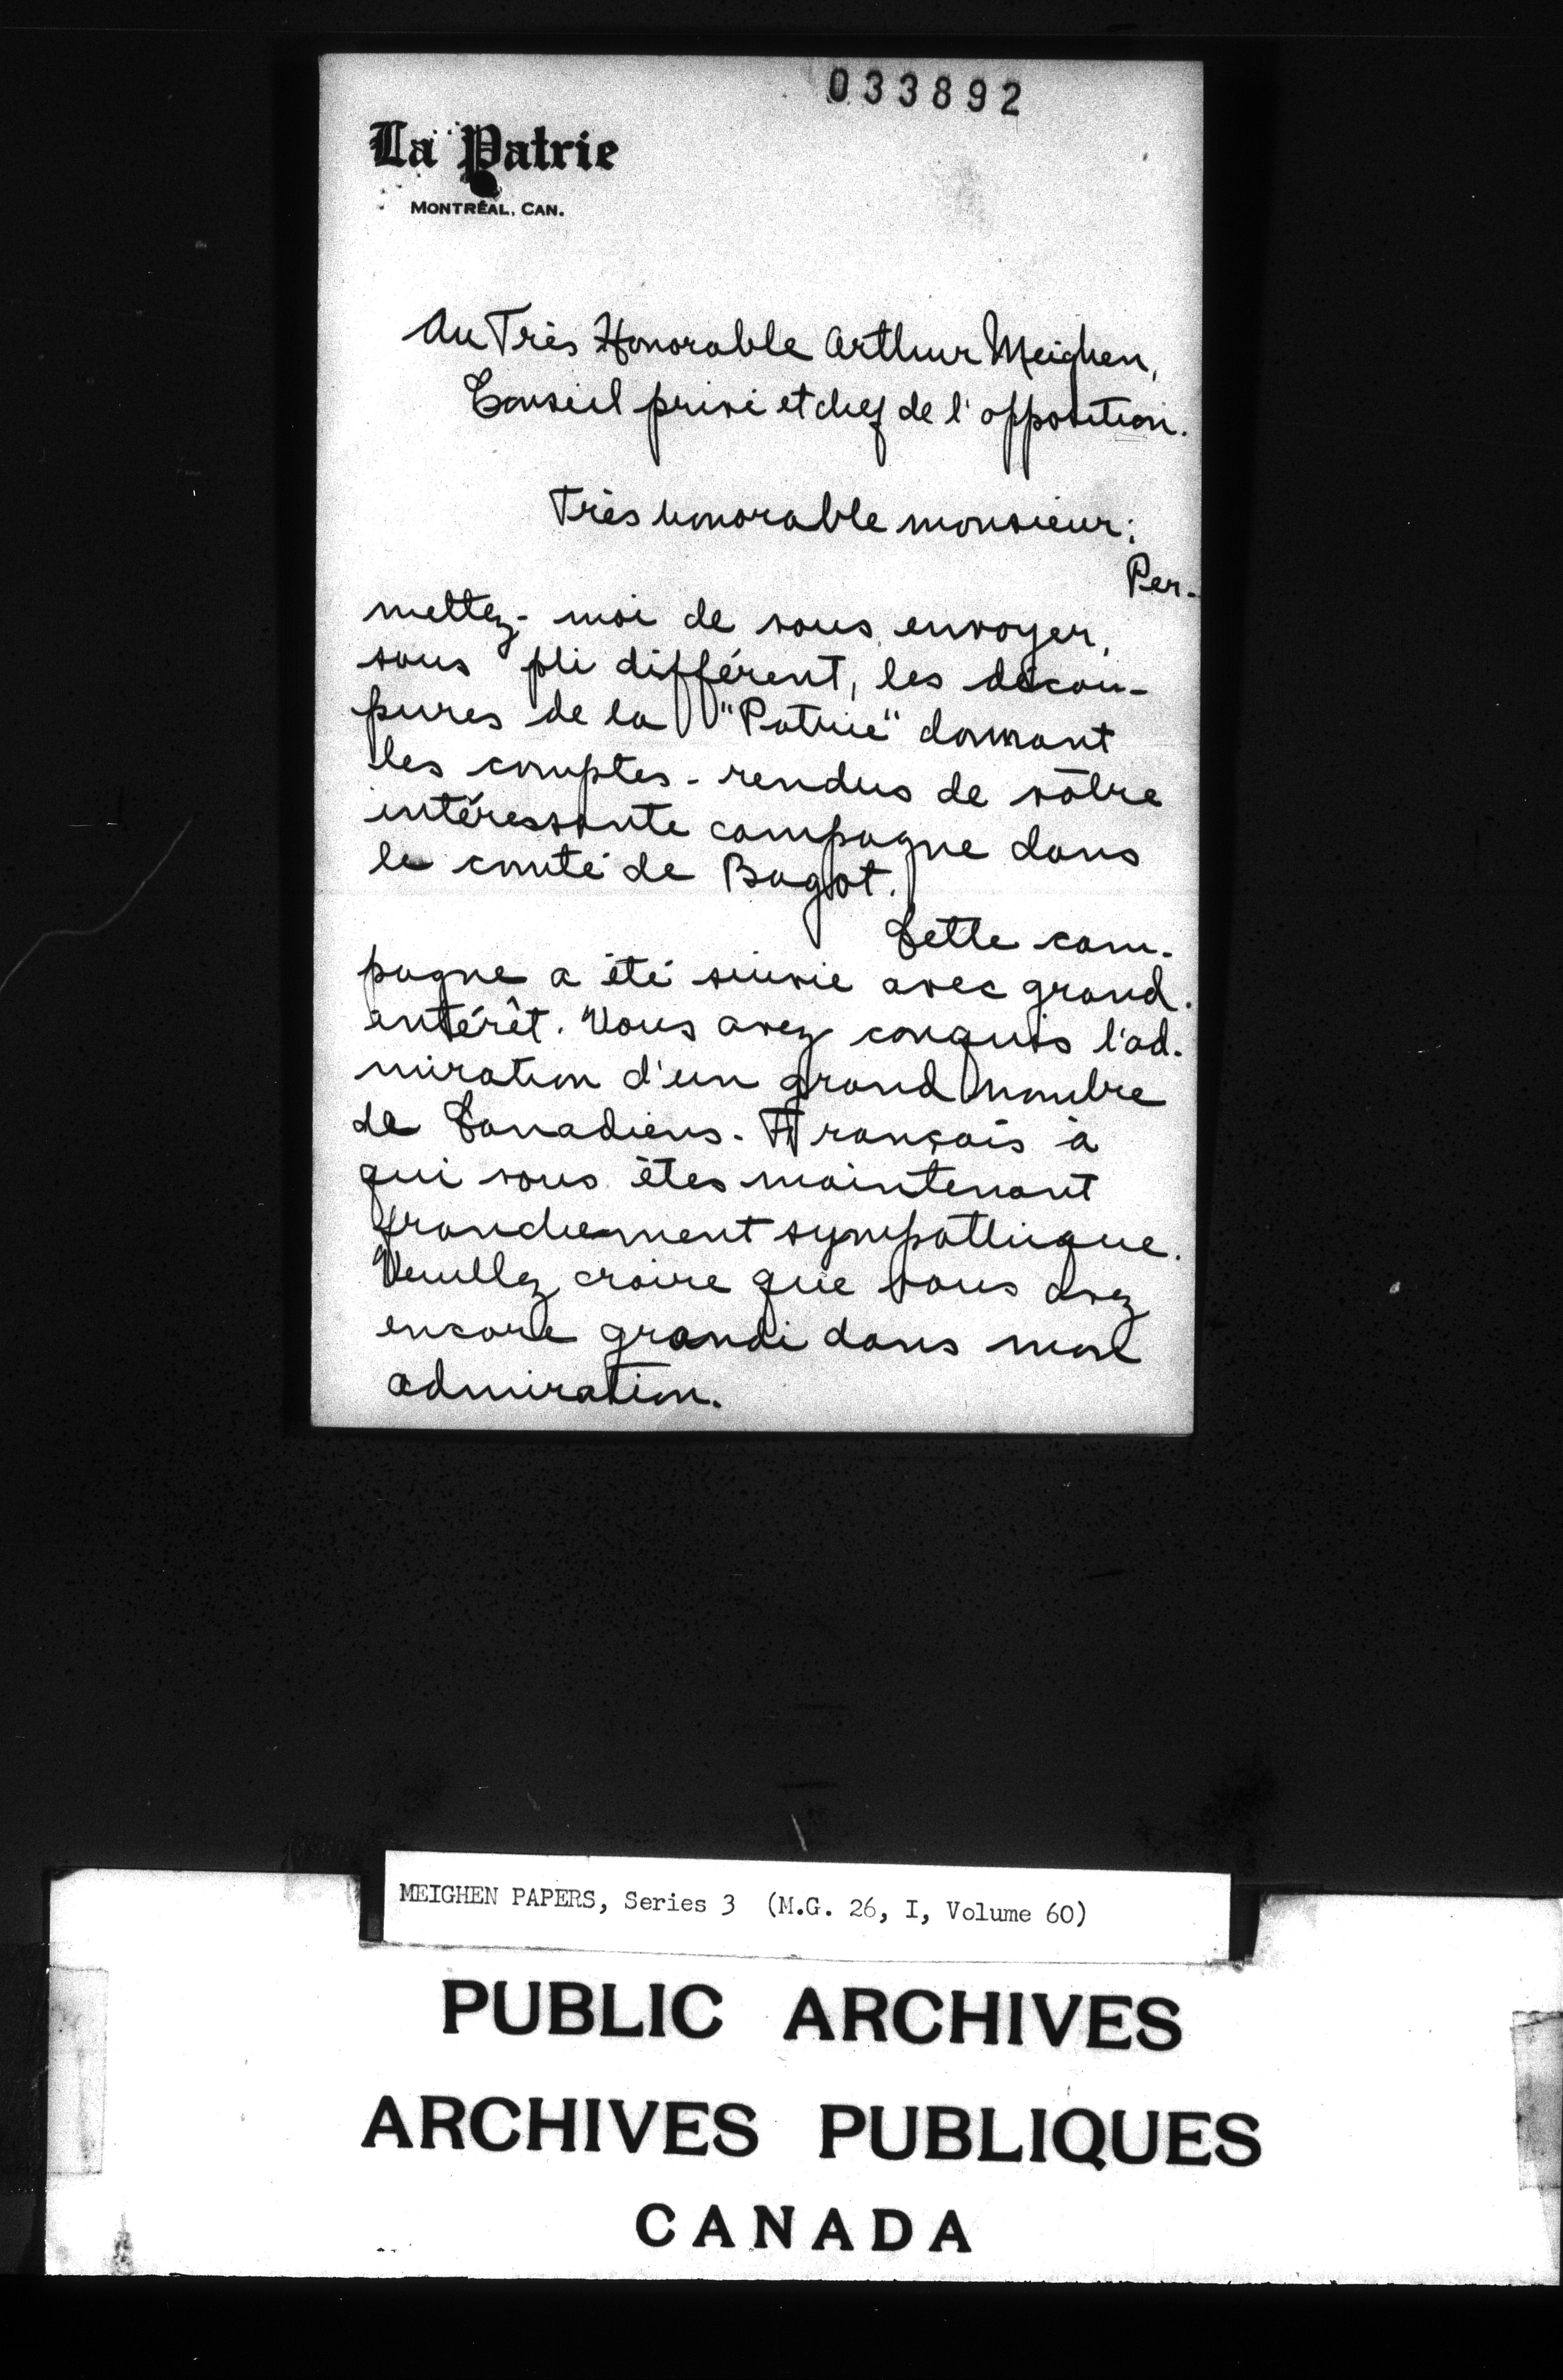 033892
La Patrie
MONTRÉAL, CAN.
Au Très Honorable Arthur Meighen,
Conseil privé et chef de l'opposition.
Très honorable monsieur:
Per-
mettez-moi de vous envoyer,
sous pli différent, les décou-
pures de la "Patrie" donnant
les comptes-rendus de vôtre
intéressante campagne dans
le comté de Bagot.
Cette cam-
pagne a été suivie avec grand
intérêt. Vous avez conquis l'ad-
miration d'un grand nombre
de Canadiens-Français à
qui vous êtes maintenant
franchement sympathique.
Veuillez croire que vous avez
encore grandi dans mon
admiration.
MEIGHEN PAPERS, Series 3 (M.G. 26, I, Volume 60)
PUBLIC ARCHIVES
ARCHIVES PUBLIQUES
CANADA